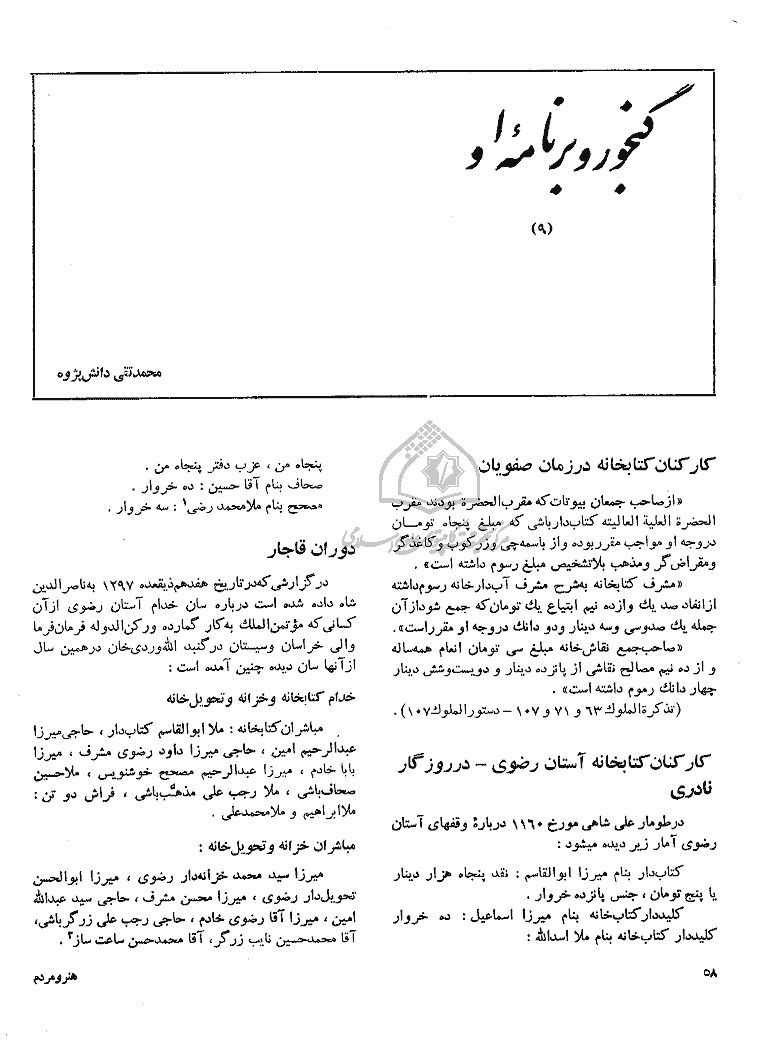 گنجور و برنامهٔ او
(۹)
محمدتقی دانش‌پژوه
کارکنان کتابخانه در زمان صفویان
«از صاحب جمعان بیوتات که مقرب‌الحضرة بودند مقرب
الحضرة العلیة العالیته کتابدارباشی که مبلغ پنجاه تومان
دروجه او مواجب مقرر بوده و از باسمه‌چی و زرکوب و کاغذگر
و مقراض‌گر و مذهب بلاتشخیص مبلغ رسوم داشته است» .
«مشرف کتابخانه به‌شرح مشرف آب‌دارخانه رسوم‌داشته
از انفاد صد یك و ازده نیم ابتیاع یك تومان که جمع شود از آن
جمله یك صد و سی و سه دینار و دو دانك دروجه او مقرر است».
«صاحب‌جمع نقاش‌خانه مبلغ سی تومان انعام همه‌ساله
و از ده نیم مصالح نقاشی از پانزده دینار و دویست‌وشش دینار
چهار دانك رموم داشته است» .
(تذکرة‌الملوك ۶۳ و ۷۱ و ۱۰۷ – دستورالملوك ۱۰۷) .
کارکنان کتابخانه آستان رضوی – در روزگار
نادری
درطومار علی شاهی مورخ ۱۱۶۰ دربارهٔ وقفهای آستان
رضوی آمار زیر دیده میشود :
کتاب‌دار بنام میرزا ابوالقاسم : نقد پنجاه هزار دینار
یا پنج تومان ، جنس پانزده خروار .
کلیددار کتاب‌خانه بنام میرزا اسماعیل : ده خروار
کلیددار کتاب‌خانه بنام ملا اسدالله :
پنجاه من ، عزب دفتر پنجاه من .
صحاف بنام آقا حسین : ده خروار .
مصحح بنام ملامحمد رضی۱ : سه خروار .
دوران قاجار
در گزارشی که در تاریخ هفدهم ذیقعده ۱۲۹۷ به ناصرالدین
شاه داده شده است درباره سان خدام آستان رضوی از آن
کسانی که مؤتمن‌الملك به‌کار گمارده ورکن‌الدوله فرمان‌فرما
والی خراسان وسیستان درگنبد الله‌وردی‌خان درهمین سال
از آنها سان دیده چنین آمده است :
خدام کتابخانه وخزانه وتحویل‌خانه
مباشران کتابخانه : ملا ابوالقاسم کتاب‌دار ، حاجی میرزا
عبدالرحیم امین ، حاجی میرزا داود رضوی مشرف ، میرزا
بابا خادم ، میرزا عبدالرحیم مصحح خوشنویس ، ملاحسین
صحاف‌باشی ، ملا رجب علی مذهّب‌باشی ، فراش دو تن :
ملاابراهیم و ملامحمدعلی .
مباشران خزانه وتحویل‌خانه :
میرزا سید محمد خزانه‌دار رضوی ، میرزا ابوالحسن
تحویل‌دار رضوی ، میرزا محسن مشرف ، حاجی سید عبدالله
امین ، میرزا آقا رضوی خادم ، حاجی رجب علی زرگرباشی،
آقا محمدحسین نایب زرگر، آقا محمدحسن ساعت ساز۲ .
۵۸
هنر و مردم